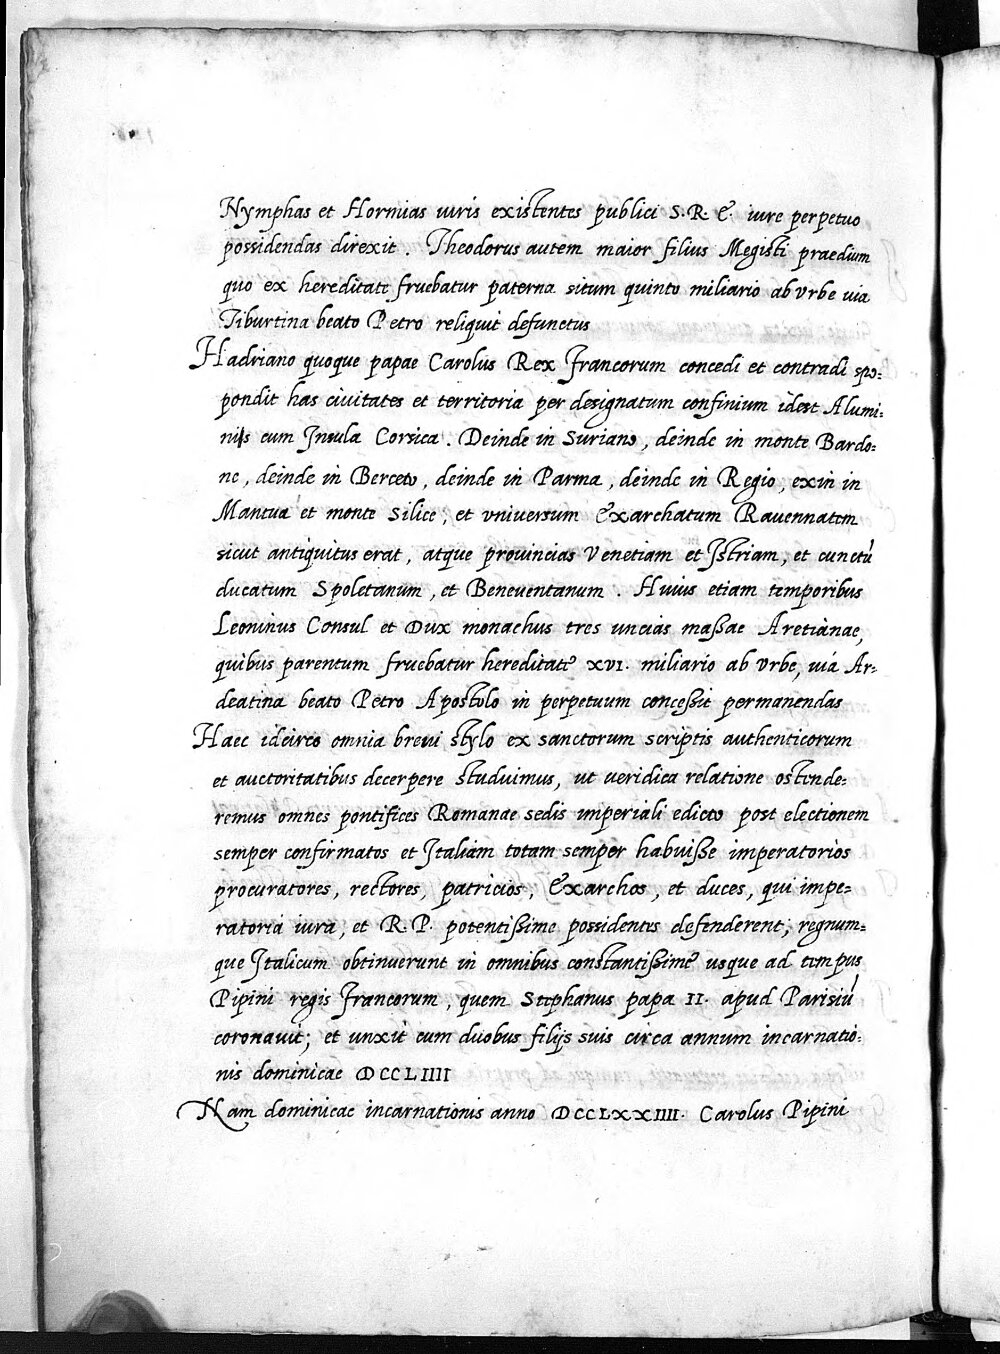 Nymphas et Hormias iuris existentes publici S. R. E. iure perpetuo
possidendas direxit. Theodorus autem maior filius Megisti praedium
quo ex hereditate fruebatur paterna situm quinto miliario ab Vrbe uia
Tiburtina beato Petro reliquit defunctus
Hadriano quoque papae Carolus Rex Francorum concedi et contradi spo=
pondit has ciuitates et territoria per designatum confinium idest Alumi=
niis cum Insula Corsica. Deinde in Suriano, deinde in monte Bardo=
ne, deinde in Berceto, deinde in Parma, deinde in Regio, exin in
Mantua et monte Silice, et vniuersum Exarchatum Rauennatem
sicut antiquitus erat, atque prouincias Venetiam et Istriam, et cunctũ
ducatum Spoletanum, et Beneuentanum. Huius etiam temporibus
Leoninus Consul et Dux monachus tres uncias maßae Aretianae,
quibus parentum fruebatur hereditate XVI. miliario ab Vrbe, uia Ar=
deatina beato Petro Apostolo in perpetuum conceßit permanendas
Haec idcirco omnia breui stylo ex sanctorum scriptis authenticorum
et auctoritatibus decerpere studuimus, ut ueridica relatione ostende=
remus omnes pontifices Romanae sedis imperiali edicto post electionem
semper confirmatos et Italiam totam semper habuiße imperatorios
procuratores, rectores, patricios, Exarchos, et duces, qui impe=
ratoria iura, et R. P. potentißime possidentes defenderent, regnum=
que Italicum obtinuerunt in omnibus constantißime usque ad tempus
Pipini regis Francorum, quem Stephanus papa II. apud Parisiũ
coronauit; et unxit cum duobus filijs suis circa annum incarnatio=
nis dominicae DCCLIIII
Nam dominicae incarnationis anno DCCLXXIIII. Carolus Pipini